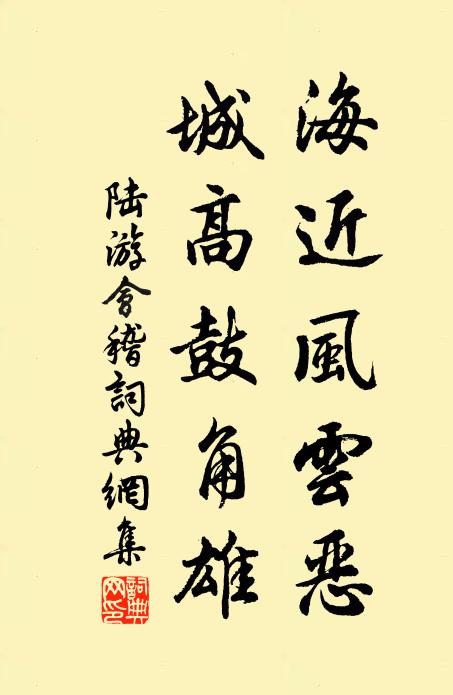 海近風雲惡
城高鼓角雄
陆游會稽詞典網集
詞典
网印